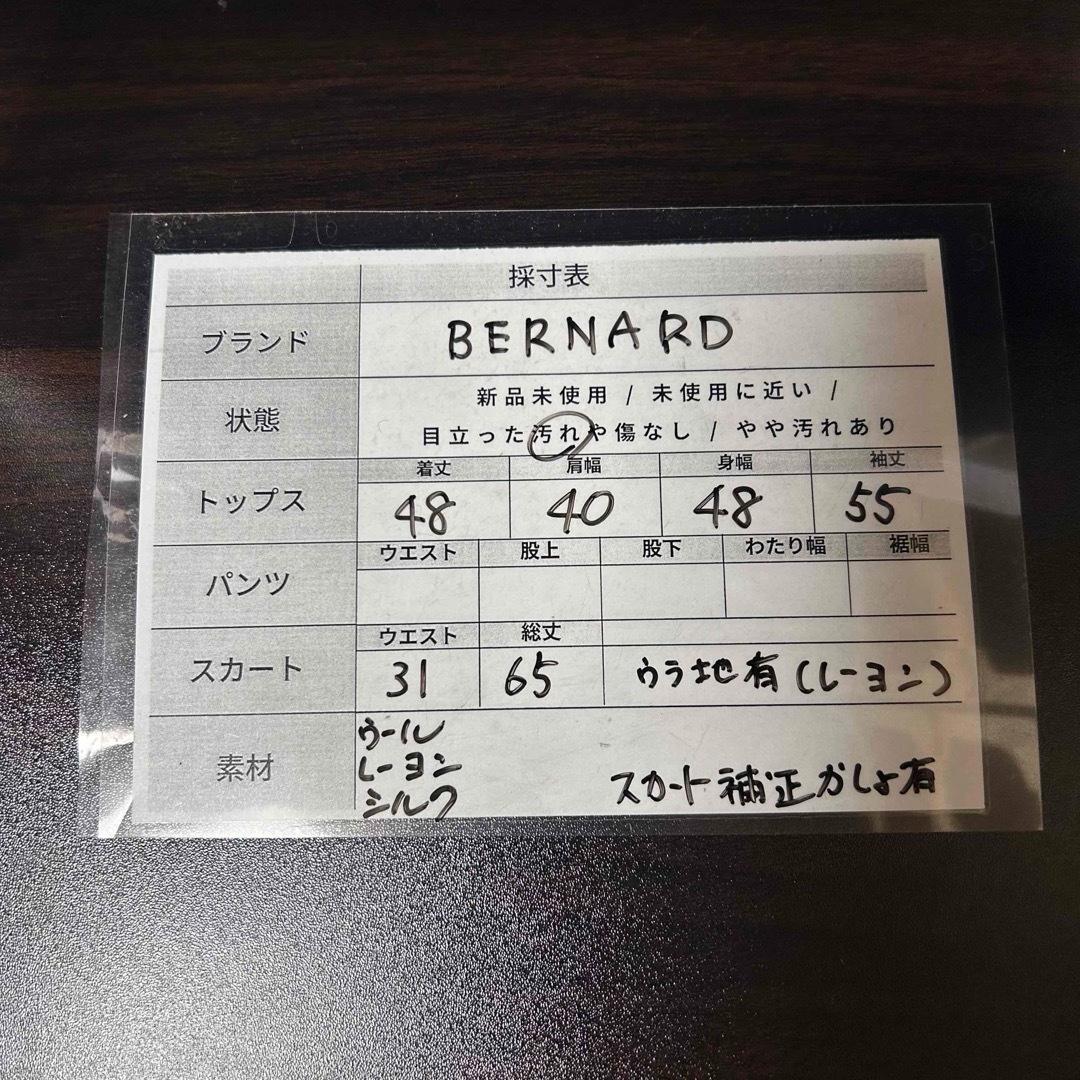 採寸表
ブランド BERNARD
状態 新品未使用 / 未使用に近い /
目立った汚れや傷なし / やや汚れあり
着丈 肩幅 身幅 袖丈
トップス 48 40 48 55
ウエスト 股上 股下 わたり幅 裾幅
パンツ
ウエスト 総丈
スカート 31 65 ウラ地有(レーヨン)
ウール
素材 レーヨン
シルク スカート補正かしょ有